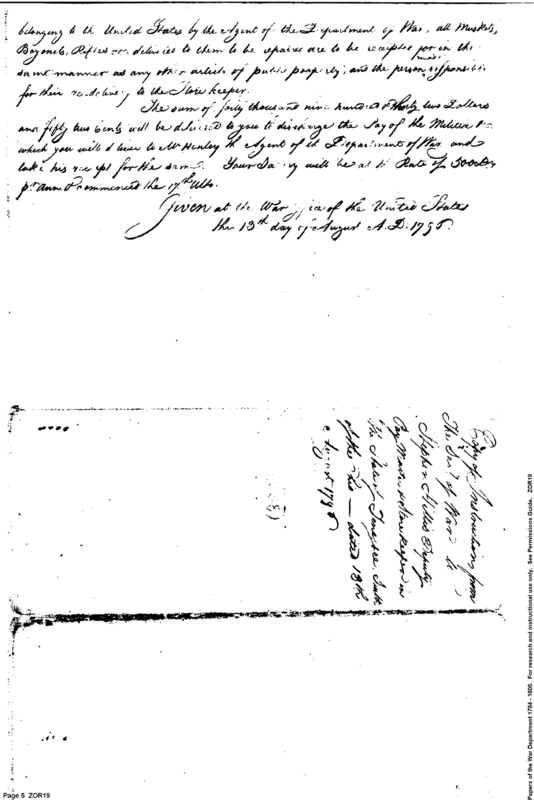 belonging to the United States by the Agent of the Department of War, all Muskets,
Bayonets, Rifles &ca. delivered to them to be repaired are to be receipted for in the
same manner as any other article of public property, and the person made responsible
for their redelivery to the Store keeper.
The sum of forty thousand nine hundred & thirty two Dollars
and fifty two Cents will be delivered to you to discharge the Pay of the Militia &c
which you will deliver to Mr Henley the Agent of the Department of War and
take his receipt for the same. Your Salary will be at the Rate of 500 Drs
pr. Ann & commenced the 17th Ulto.
Given at the War office of the United States
this 13th day of August A.D. 1796.
Copy of Instructions from
The Secy of War to
Stephen Hillis Deputy
Pay Master & Store keeper in
The State of Tenessee
dated 13th
August 1796
Page 5 ZOR19
Papers of the War Department 1784 - 1800. For research and instructional use only. See Permissions Guide. ZOR19